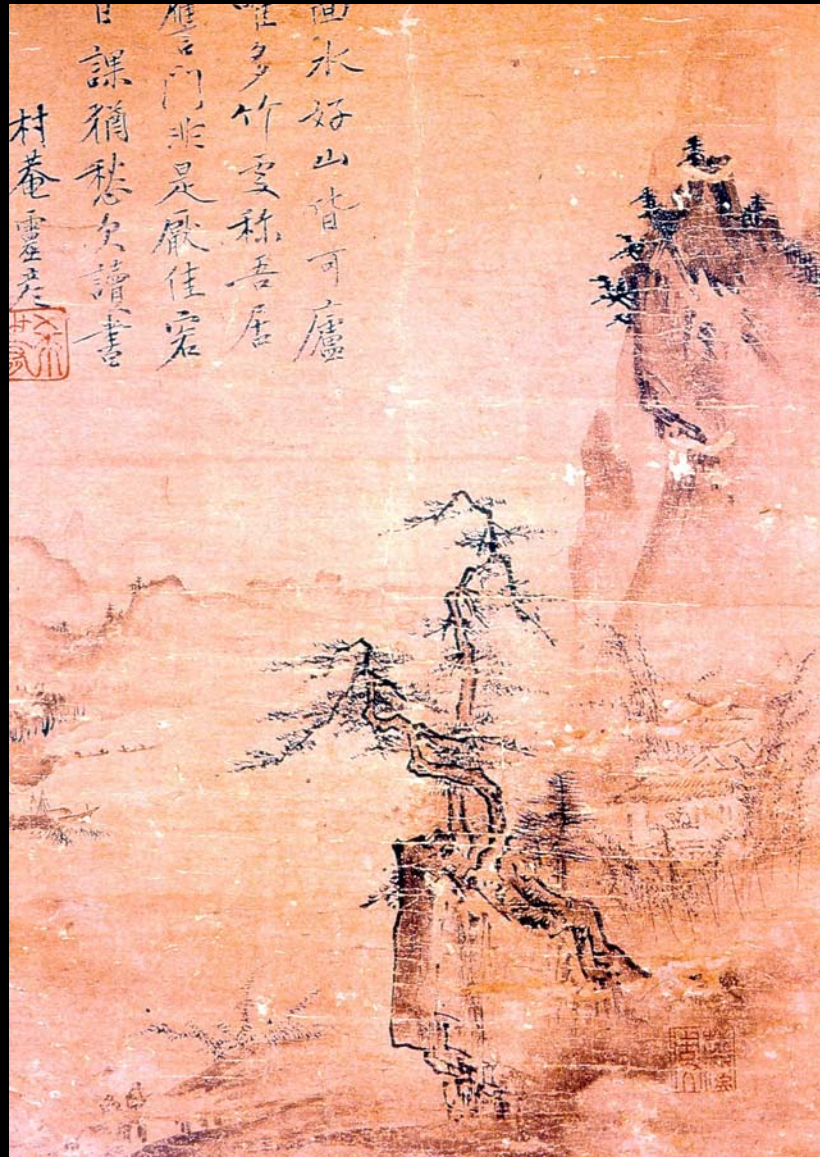 水好山皆可廬
唯多竹處称吾居
譍門非是厭佳客
日課猶愁欠讀書
村菴靈彦